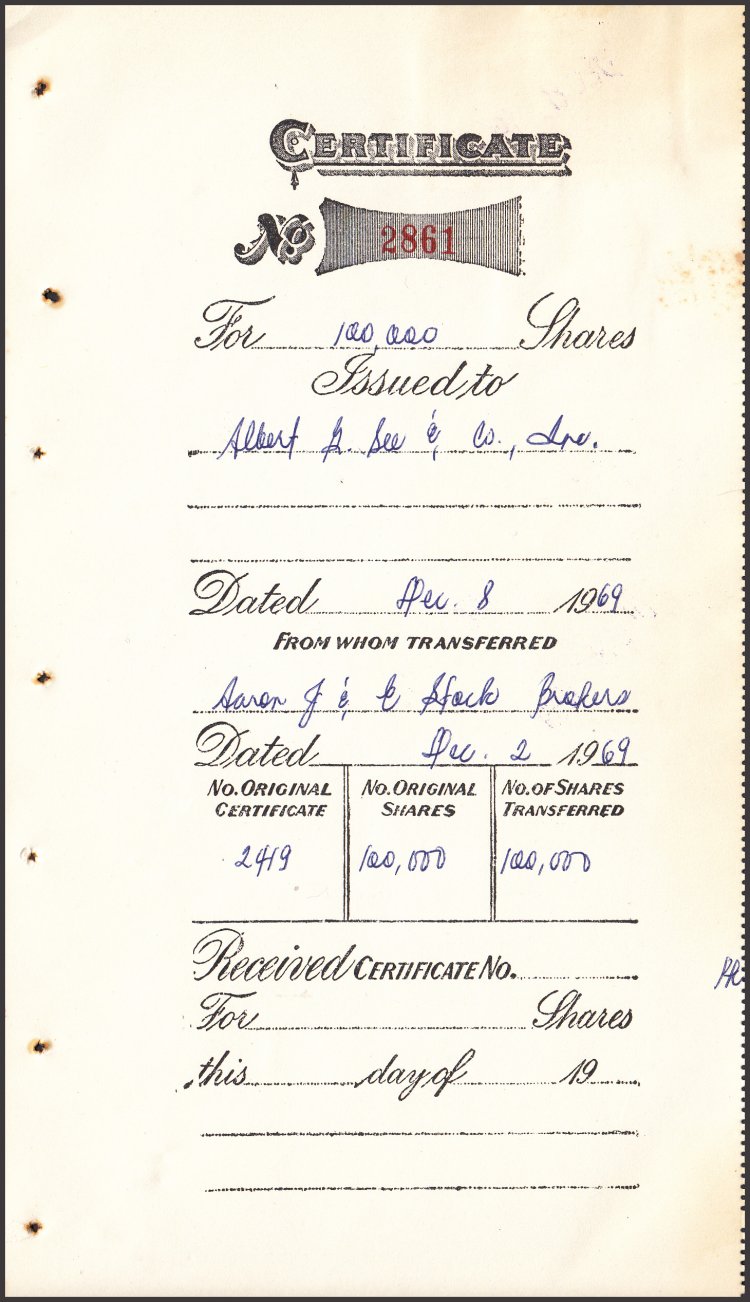 CERTIFICATE
No 2861
For 100,000 Shares
Issued to
Albert G. See & Co., Inc.
Dated Dec. 8 1969
FROM WHOM TRANSFERRED
Aaron J & E Stock Brokers
Dated Dec. 2 1969
NO. ORIGINAL CERTIFICATE NO. ORIGINAL SHARES NO. OF SHARES TRANSFERRED
2419 100,000 100,000
Received CERTIFICATE NO.
For Shares
this day of 19